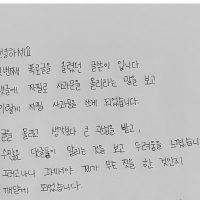 안녕하세요
번째 폭로글을 올렸던 글쓴이 입니다
댓글에 자필로 사과문을 올리라는 말을 보고
이렇게 자필 사과문을 쓰게 되었습니다.
글을 올리고 생각보다 큰 관심을 받고,
수많은 댓글들이 달리는 것을 보고 두려움을 느꼈습니다
그러고나니 그제서야 제가 무슨 짓을 한 것인지
깨닫게 되었습니다.